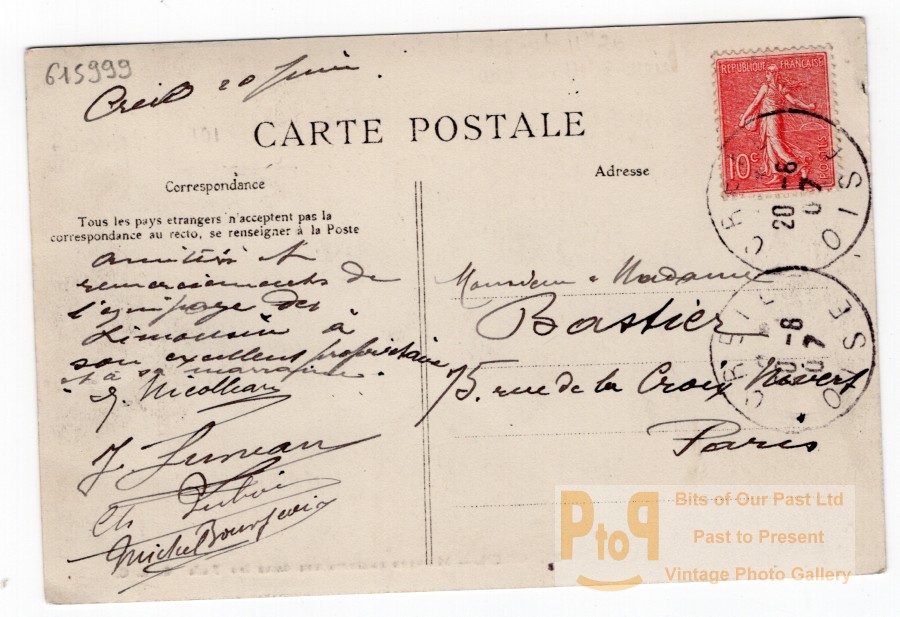 615999
Creil 20 Juin.
CARTE POSTALE
REPUBLIQUE FRANÇAISE
10c
POSTES
CREIL OISE
20 -6
07
CREIL OISE
20 -6
07
Correspondance
Adresse
Tous les pays etrangers n'acceptent pas la
correspondance au recto, se renseigner à la Poste
amitiés et
remerciements de
l'equipage du
Limousin à
son excellent propriétaire
et à sa marraine.
Nicolleau
J. Luneau
Ch Dubois
Michel Bourgeois
Monsieur e Madame
Bastier
75. rue de la Croix Nivert
Paris
PtoP
Bits of Our Past Ltd
Past to Present
Vintage Photo Gallery